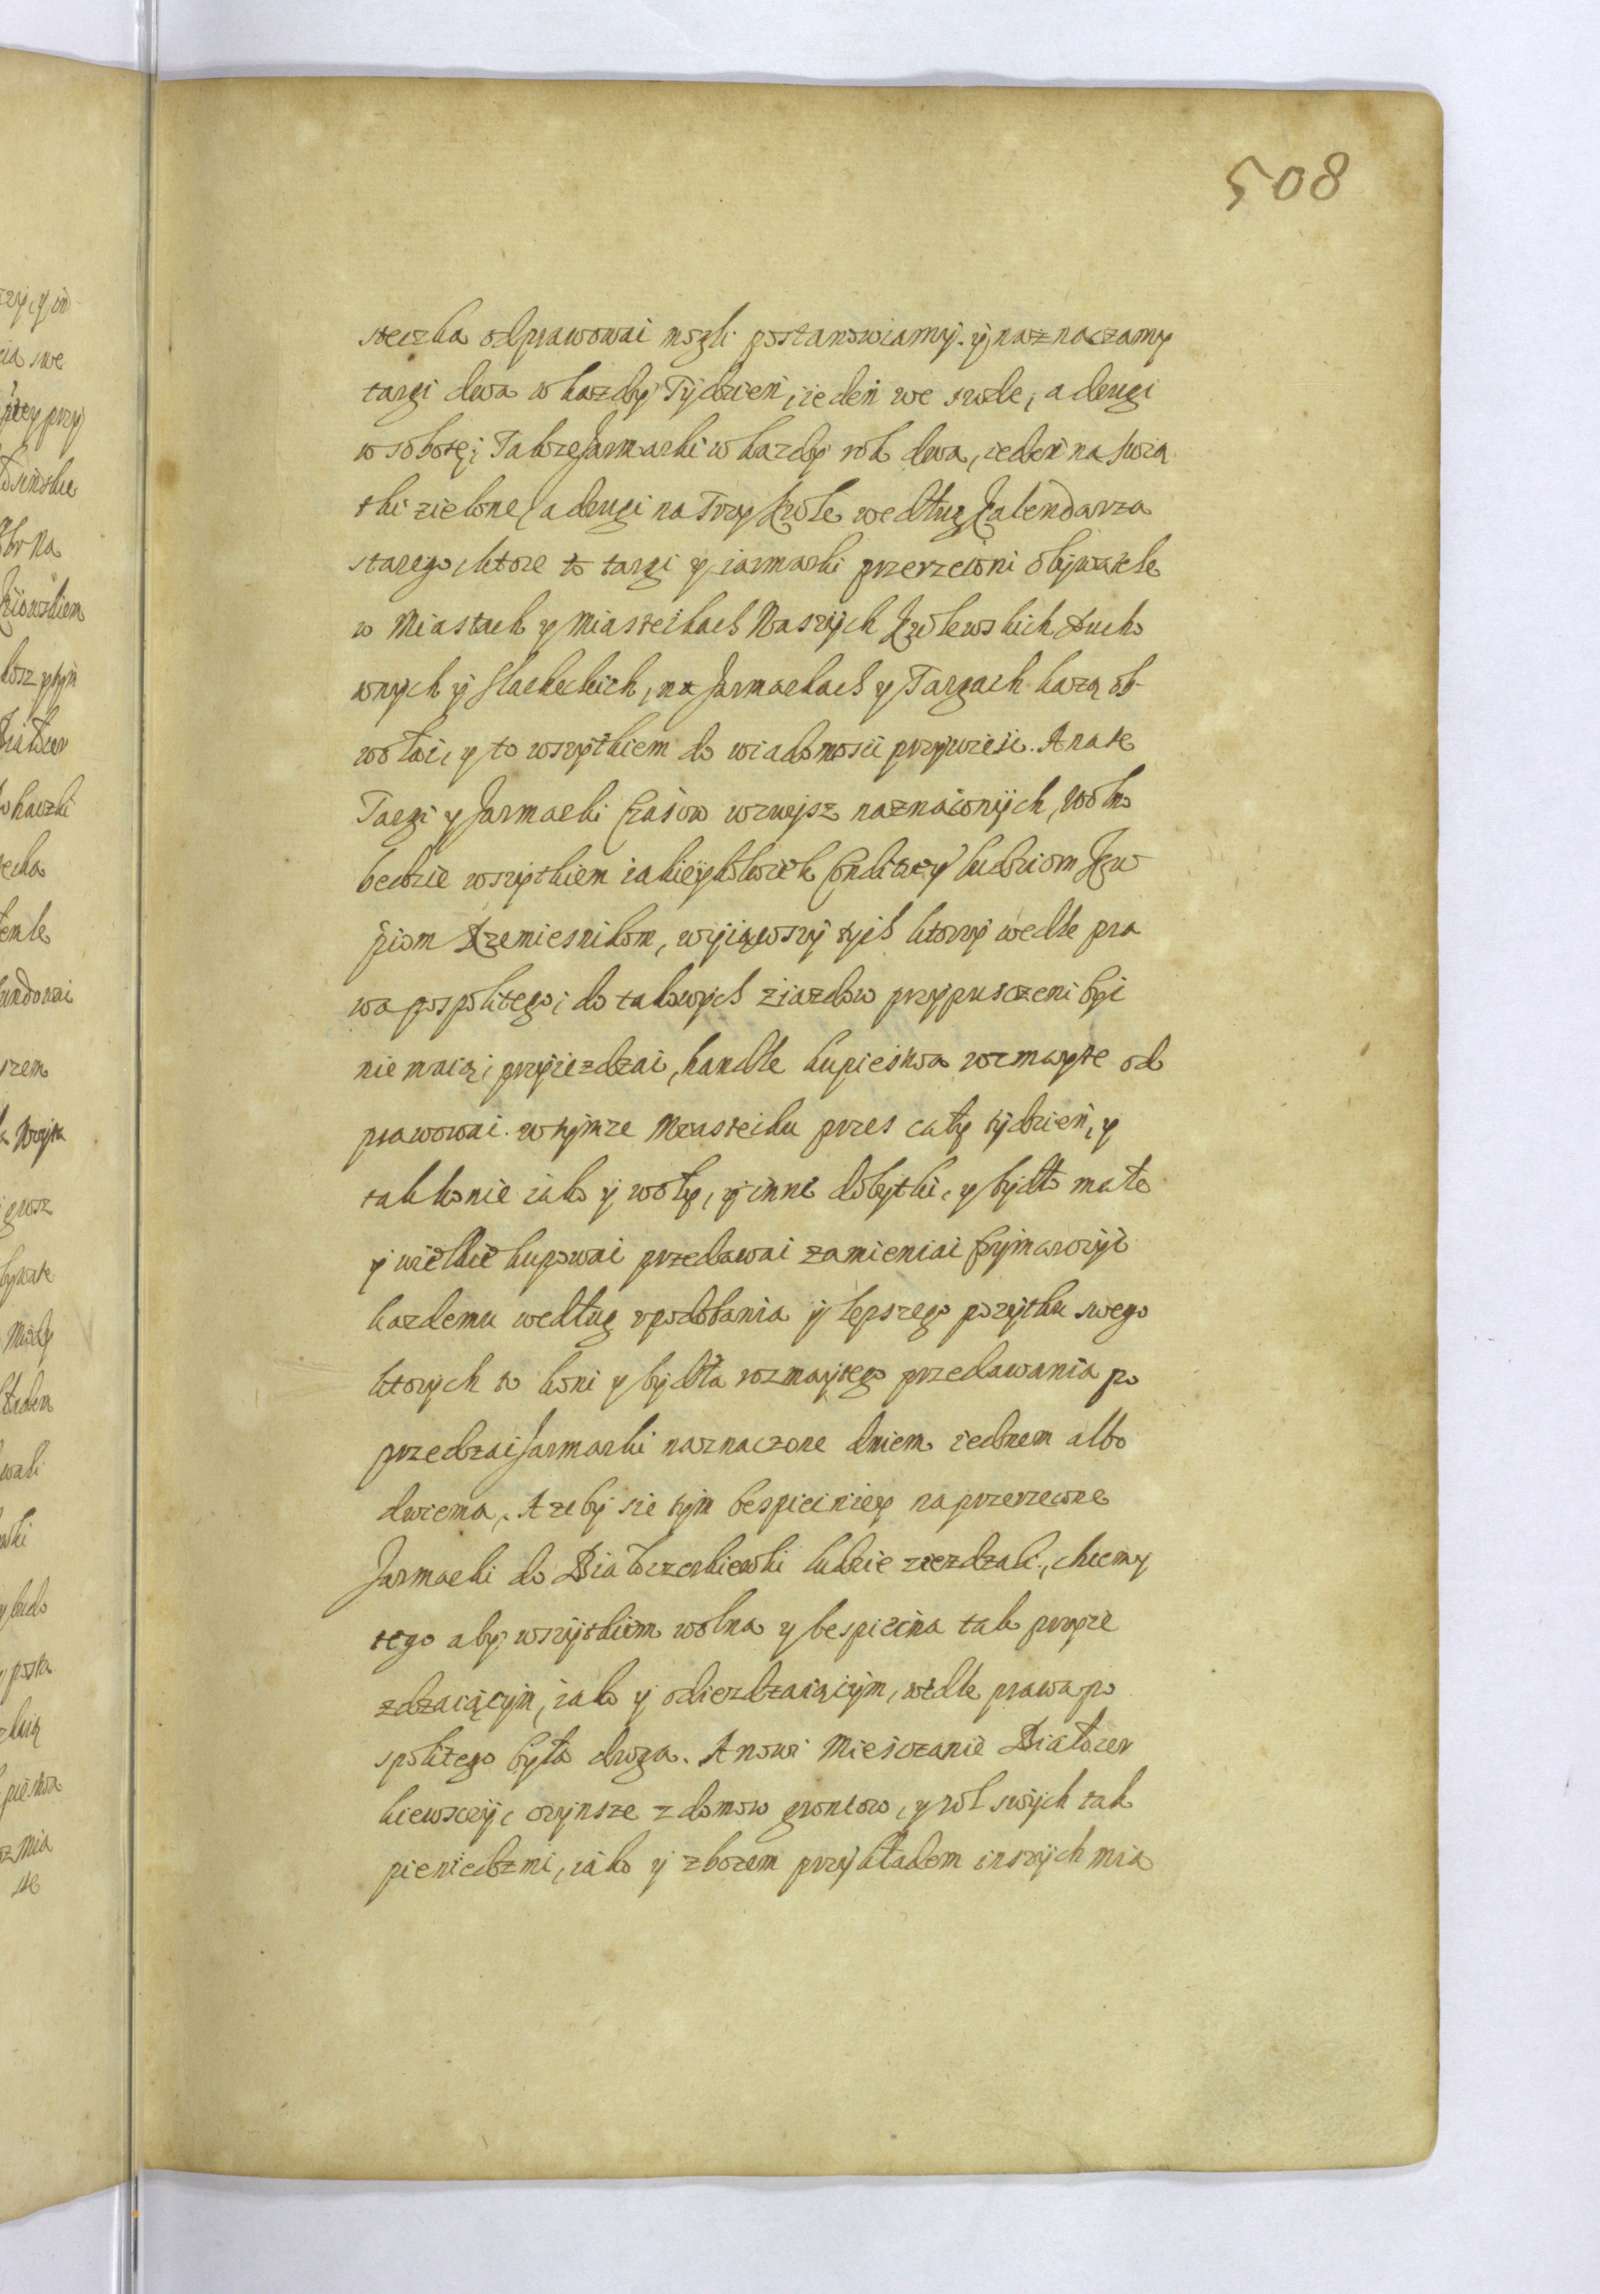 508
steczka odprawowai mogli postanowiamy. y naznaczamy
targi dwa w kazdy Tydzień, ieden we srode, a drugi
w sobotę, Takze Jarmarki w kazdy rok dwa, ieden na swią
tki zielone, a drugi na Trzy Krole według Kalendarza
starego, ktore to targi y iarmarki przerzeczoni obywatele
w Miastach y Miasteczkach Naszych Krolewskich Ducho
wnych y slacheckich, na Jarmarkach y Targach kazą ob-
wołać, y to wszytkiem do wiadomosci przywieść. A na te
Targi y Jarmarki Czasow wzwysz naznaczonych, wolno
bedzie wszytkiem iakieykolwiek Conditiey ludziom Ku
piom Rzemiesnikom, wyiąwszy tych ktorzy wedle pra
wa pospolitego, do takowych ziazdow przypusczeni byc
nie maią, przyiezdzai, handle kupiectwa rozmayte od
prawowai. w tymze Miasteczku przes cały tydzień, y
tak konie iako y woły, y inne dobytki, y bydło małe
y wielkie kupowai przedawai zamieniai frymarczyc
kazdemu według upodobania y lepszego pozytku swego
ktorych to koni y bydła rozmaytego przedawania po
przedzai Jarmarki naznaczone dniem iednem albo
dwiema. A zeby sie tym bespieczniey na przerzeczone
Jarmarki do Białoczerkiewki ludzie ziezdzali, chcemy
tego aby wszytkiem wolna y bespieczna tak przyie
zdzaiącym, iako y odiezdzaiącym, wedle prawa po
spolitego była droga. A nowi Mieszczanie Białocer
kiewsczy, czynsze z domow gruntow, y rol swych tak
pieniedzmi, iako y zbozem przykładem inszych mia